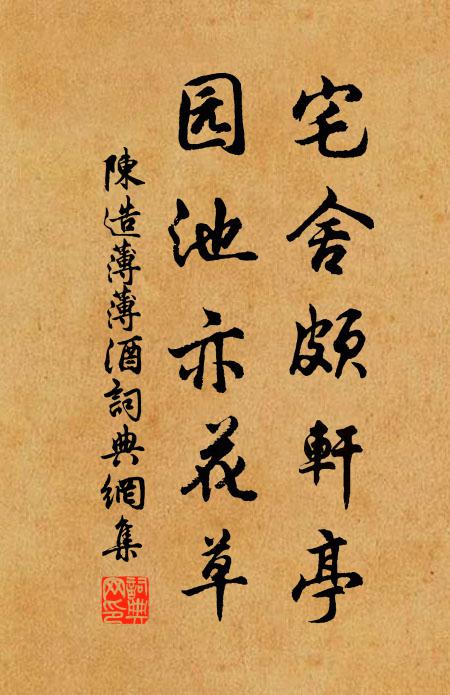 宅舍頗軒亭
园池亦花草
陳造薄薄酒詞典網集
詞典